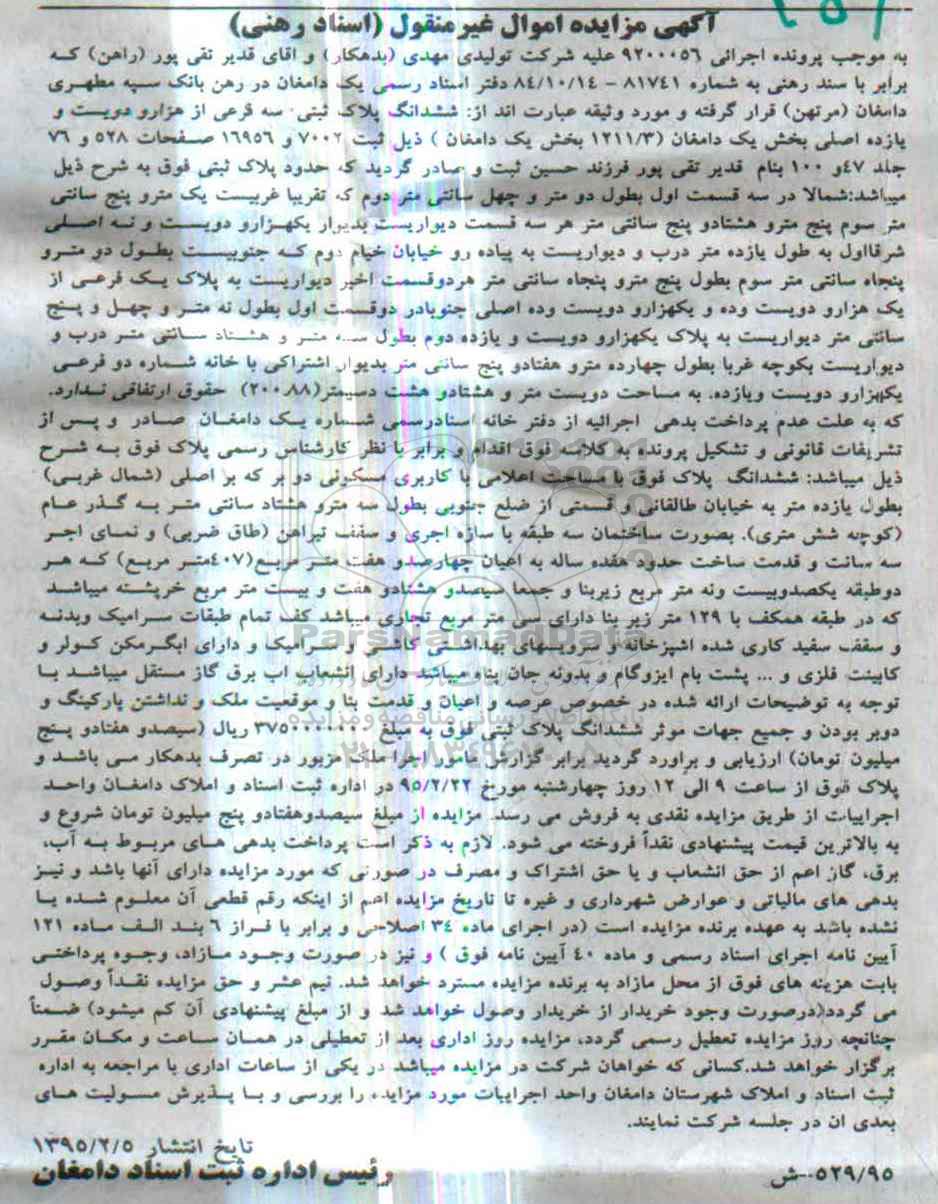 آگهی مزایده اموال غیرمنقول (اسناد رهنی)
به موجب پرونده اجرائی ۹۲۰۰۰۵۶ علیه شرکت تولیدی مهدی (بدهکار) و اقای قدیر تقی پور (راهن) که
برابر با سند رهنی به شماره ۸۱۷۴۱ - ۸۴/۱۰/۱۴ دفتر اسناد رسمی یک دامغان در رهن بانک سپه مطهری
دامغان (مرتهن) قرار گرفته و مورد وثیقه عبارت اند از: ششدانگ پلاک ثبتی سه فرعی از هزارو دویست و
یازده اصلی بخش یک دامغان (۱۲۱۱/۳ بخش یک دامغان ) ذیل ثبت ۷۰۰۲ و ۱۶۹۵۶ صفحات ۵۲۸ و ۷۶
جلد ۴۷و ۱۰۰ بنام قدیر تقی پور فرزند حسین ثبت و صادر گردید که حدود پلاک ثبتی فوق به شرح ذیل
میباشد:شمالا در سه قسمت اول بطول دو متر و چهل سانتی متر دوم که تقریبا غربیست یک مترو پنج سانتی
متر سوم پنج مترو هشتادو پنج سانتی متر هر سه قسمت دیواریست بدیوار یکهزارو دویست و نه اصلی
شرقااول به طول یازده متر درب و دیواریست به پیاده رو خیابان خیام دوم که جنوبیست بطول دو مترو
پنجاه سانتی متر سوم بطول پنج مترو پنجاه سانتی متر هردوقسمت اخیر دیواریست به پلاک یک فرعی از
یک هزارو دویست وده و یکهزارو دویست وده اصلی جنوبادر دوقسمت اول بطول نه متر و چهل و پنج
سانتی متر دیواریست به پلاک یکهزارو دویست و یازده دوم بطول سه متر و هشتاد سانتی متر درب و
دیواریست بکوچه غربا بطول چهارده مترو هفتادو پنج سانتی متر بدیوار اشتراکی با خانه شماره دو فرعی
یکهزارو دویست ویازده. به مساحت دویست متر و هشتادو هشت دسیمتر(۲۰۰.۸۸) حقوق ارتفاقی ندارد.
که به علت عدم پرداخت بدهی اجرائیه از دفتر خانه اسنادرسمی شماره یک دامغان صادر و پس از
تشریفات قانونی و تشکیل پرونده به کلاسه فوق اقدام و برابر با نظر کارشناس رسمی پلاک فوق به شرح
ذیل میباشد: ششدانگ پلاک فوق با مساحت اعلامی با کاربری مسکونی دو بر که بر اصلی (شمال غربی)
بطول یازده متر به خیابان طالقانی و قسمتی از ضلع جنوبی بطول سه مترو هشتاد سانتی متر به گذر عام
(کوچه شش متری). بصورت ساختمان سه طبقه با سازه اجری و سقف تیراهن (طاق ضربی) و نمای اجر
سه سانت و قدمت ساخت حدود هفده ساله به اعیان چهارصدو هفت متر مربع(۴۰۷متر مربع) که هر
دوطبقه یکصدوبیست ونه متر مربع زیربنا و جمعا سیصدو هشتادو هفت و بیست متر مربع خرپشته میباشد
که در طبقه همکف با ۱۲۹ متر زیر بنا دارای سی متر مربع تجاری میباشد کف تمام طبقات سرامیک وبدنه
و سقف سفید کاری شده اشپزخانه و سرویسهای بهداشتی کاشی و سرامیک و دارای ابگرمکن کولر و
کابینت فلزی و ... پشت بام ایزوگام و بدونه جان پناه میباشد دارای انشعاب اب برق گاز مستقل میباشد با
توجه به توضیحات ارائه شده در خصوص عرصه و اعیان و قدمت بنا و موقعیت ملک و نداشتن پارکینگ و
دوبر بودن و جمیع جهات موثر ششدانگ پلاک ثبتی فوق به مبلغ ۳۷۵۰۰۰۰۰۰۰ ریال (سیصدو هفتادو پنج
میلیون تومان) ارزیابی و براورد گردید برابر گزارش مامور اجرا ملک مزبور در تصرف بدهکار می باشد و
پلاک فوق از ساعت ۹ الی ۱۲ روز چهارشنبه مورخ ۹۵/۲/۲۲ در اداره ثبت اسناد و املاک دامغان واحد
اجراییات از طریق مزایده نقدی به فروش می رسد. مزایده از مبلغ سیصدوهفتادو پنج میلیون تومان شروع و
به بالاترین قیمت پیشنهادی نقداً فروخته می شود. لازم به ذکر است پرداخت بدهی های مربوط به آب،
برق، گاز اعم از حق انشعاب و یا حق اشتراک و مصرف در صورتی که مورد مزایده دارای آنها باشد و نیز
بدهی های مالیاتی و عوارض شهرداری و غیره تا تاریخ مزایده اعم از اینکه رقم قطعی آن معلوم شده یا
نشده باشد به عهده برنده مزایده است (در اجرای ماده ۳۴ اصلاحی و برابر با فراز ۶ بند الف ماده ۱۲۱
آیین نامه اجرای اسناد رسمی و ماده ۴۰ آیین نامه فوق ) و نیز در صورت وجود مازاد، وجوه پرداختی
بابت هزینه های فوق از محل مازاد به برنده مزایده مسترد خواهد شد. نیم عشر و حق مزایده نقداً وصول
می گردد(درصورت وجود خریدار از خریدار وصول خواهد شد و از مبلغ پیشنهادی آن کم میشود) ضمناً
چنانچه روز مزایده تعطیل رسمی گردد، مزایده روز اداری بعد از تعطیلی در همان ساعت و مکان مقرر
برگزار خواهد شد.کسانی که خواهان شرکت در مزایده میباشد در یکی از ساعات اداری با مراجعه به اداره
ثبت اسناد و املاک شهرستان دامغان واحد اجراییات مورد مزایده را بررسی و با پذیرش مسولیت های
بعدی ان در جلسه شرکت نمایند.
تایخ انتشار ۱۳۹۵/۲/۵
رئیس اداره ثبت اسناد دامغان
۵۲۹/۹۵--ش
ParsNamadData
پایگاه اطلاع رسانی مناقصه و مزایده